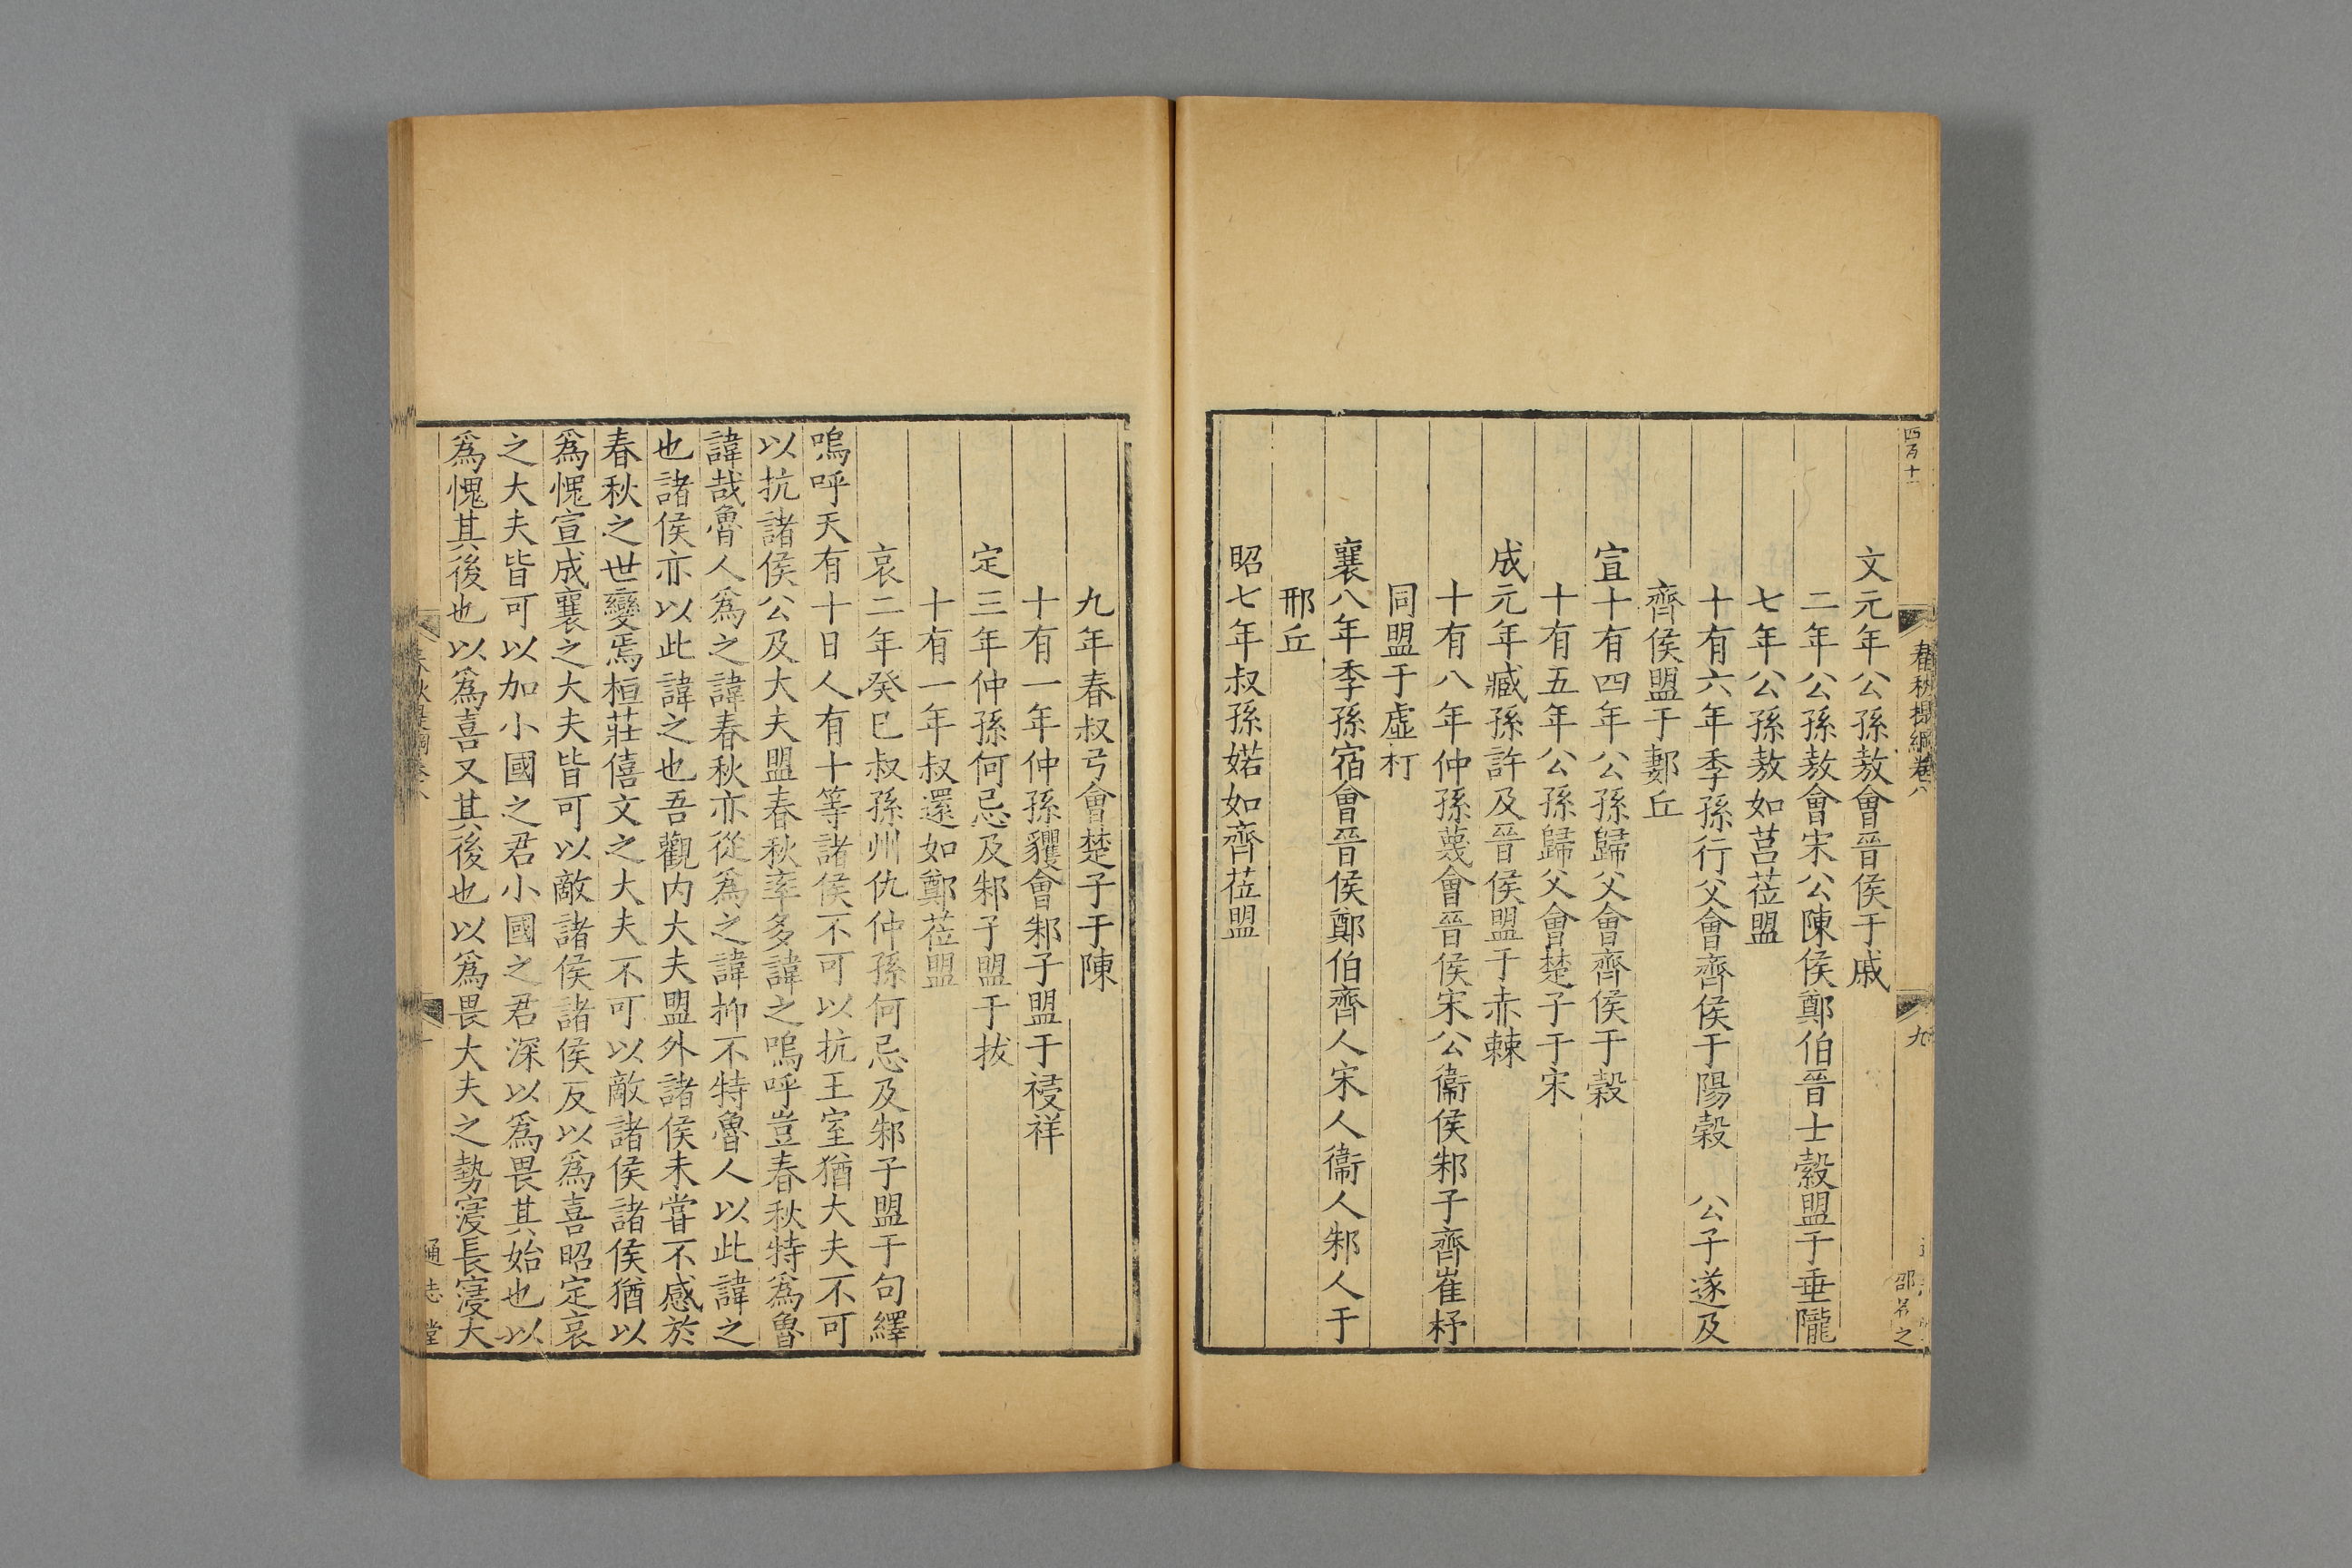 四百十
春秋提綱卷八
九
邵名之
文元年公孫敖會晉侯于戚
二年公孫敖會宋公陳侯鄭伯晉士縠盟于垂隴
七年公孫敖如莒莅盟
十有六年季孫行父會齊侯于陽穀　公子遂及
齊侯盟于郪丘
宣十有四年公孫歸父會齊侯于穀
十有五年公孫歸父會楚子于宋
成元年臧孫許及晉侯盟于赤棘
十有八年仲孫蔑會晉侯宋公衞侯邾子齊崔杼
同盟于虛朾
襄八年季孫宿會晉侯鄭伯齊人宋人衞人邾人于
邢丘
昭七年叔孫婼如齊莅盟
九年春叔弓會楚子于陳
十有一年仲孫貜會邾子盟于祲祥
定三年仲孫何忌及邾子盟于拔
十有一年叔還如鄭莅盟
哀二年癸巳叔孫州仇仲孫何忌及邾子盟于句繹
嗚呼天有十日人有十等諸侯不可以抗王室猶大夫不可
以抗諸侯公及大夫盟春秋率多諱之嗚呼豈春秋特爲魯
諱哉魯人爲之諱春秋亦從爲之諱抑不特魯人以此諱之
也諸侯亦以此諱之也吾觀内大夫盟外諸侯未嘗不感於
春秋之世變焉桓莊僖文之大夫不可以敵諸侯諸侯猶以
爲愧宣成襄之大夫皆可以敵諸侯諸侯反以爲喜昭定哀
之大夫皆可以加小國之君小國之君深以爲畏其始也以
爲愧其後也以爲喜又其後也以爲畏大夫之勢寖長寖大
通志堂